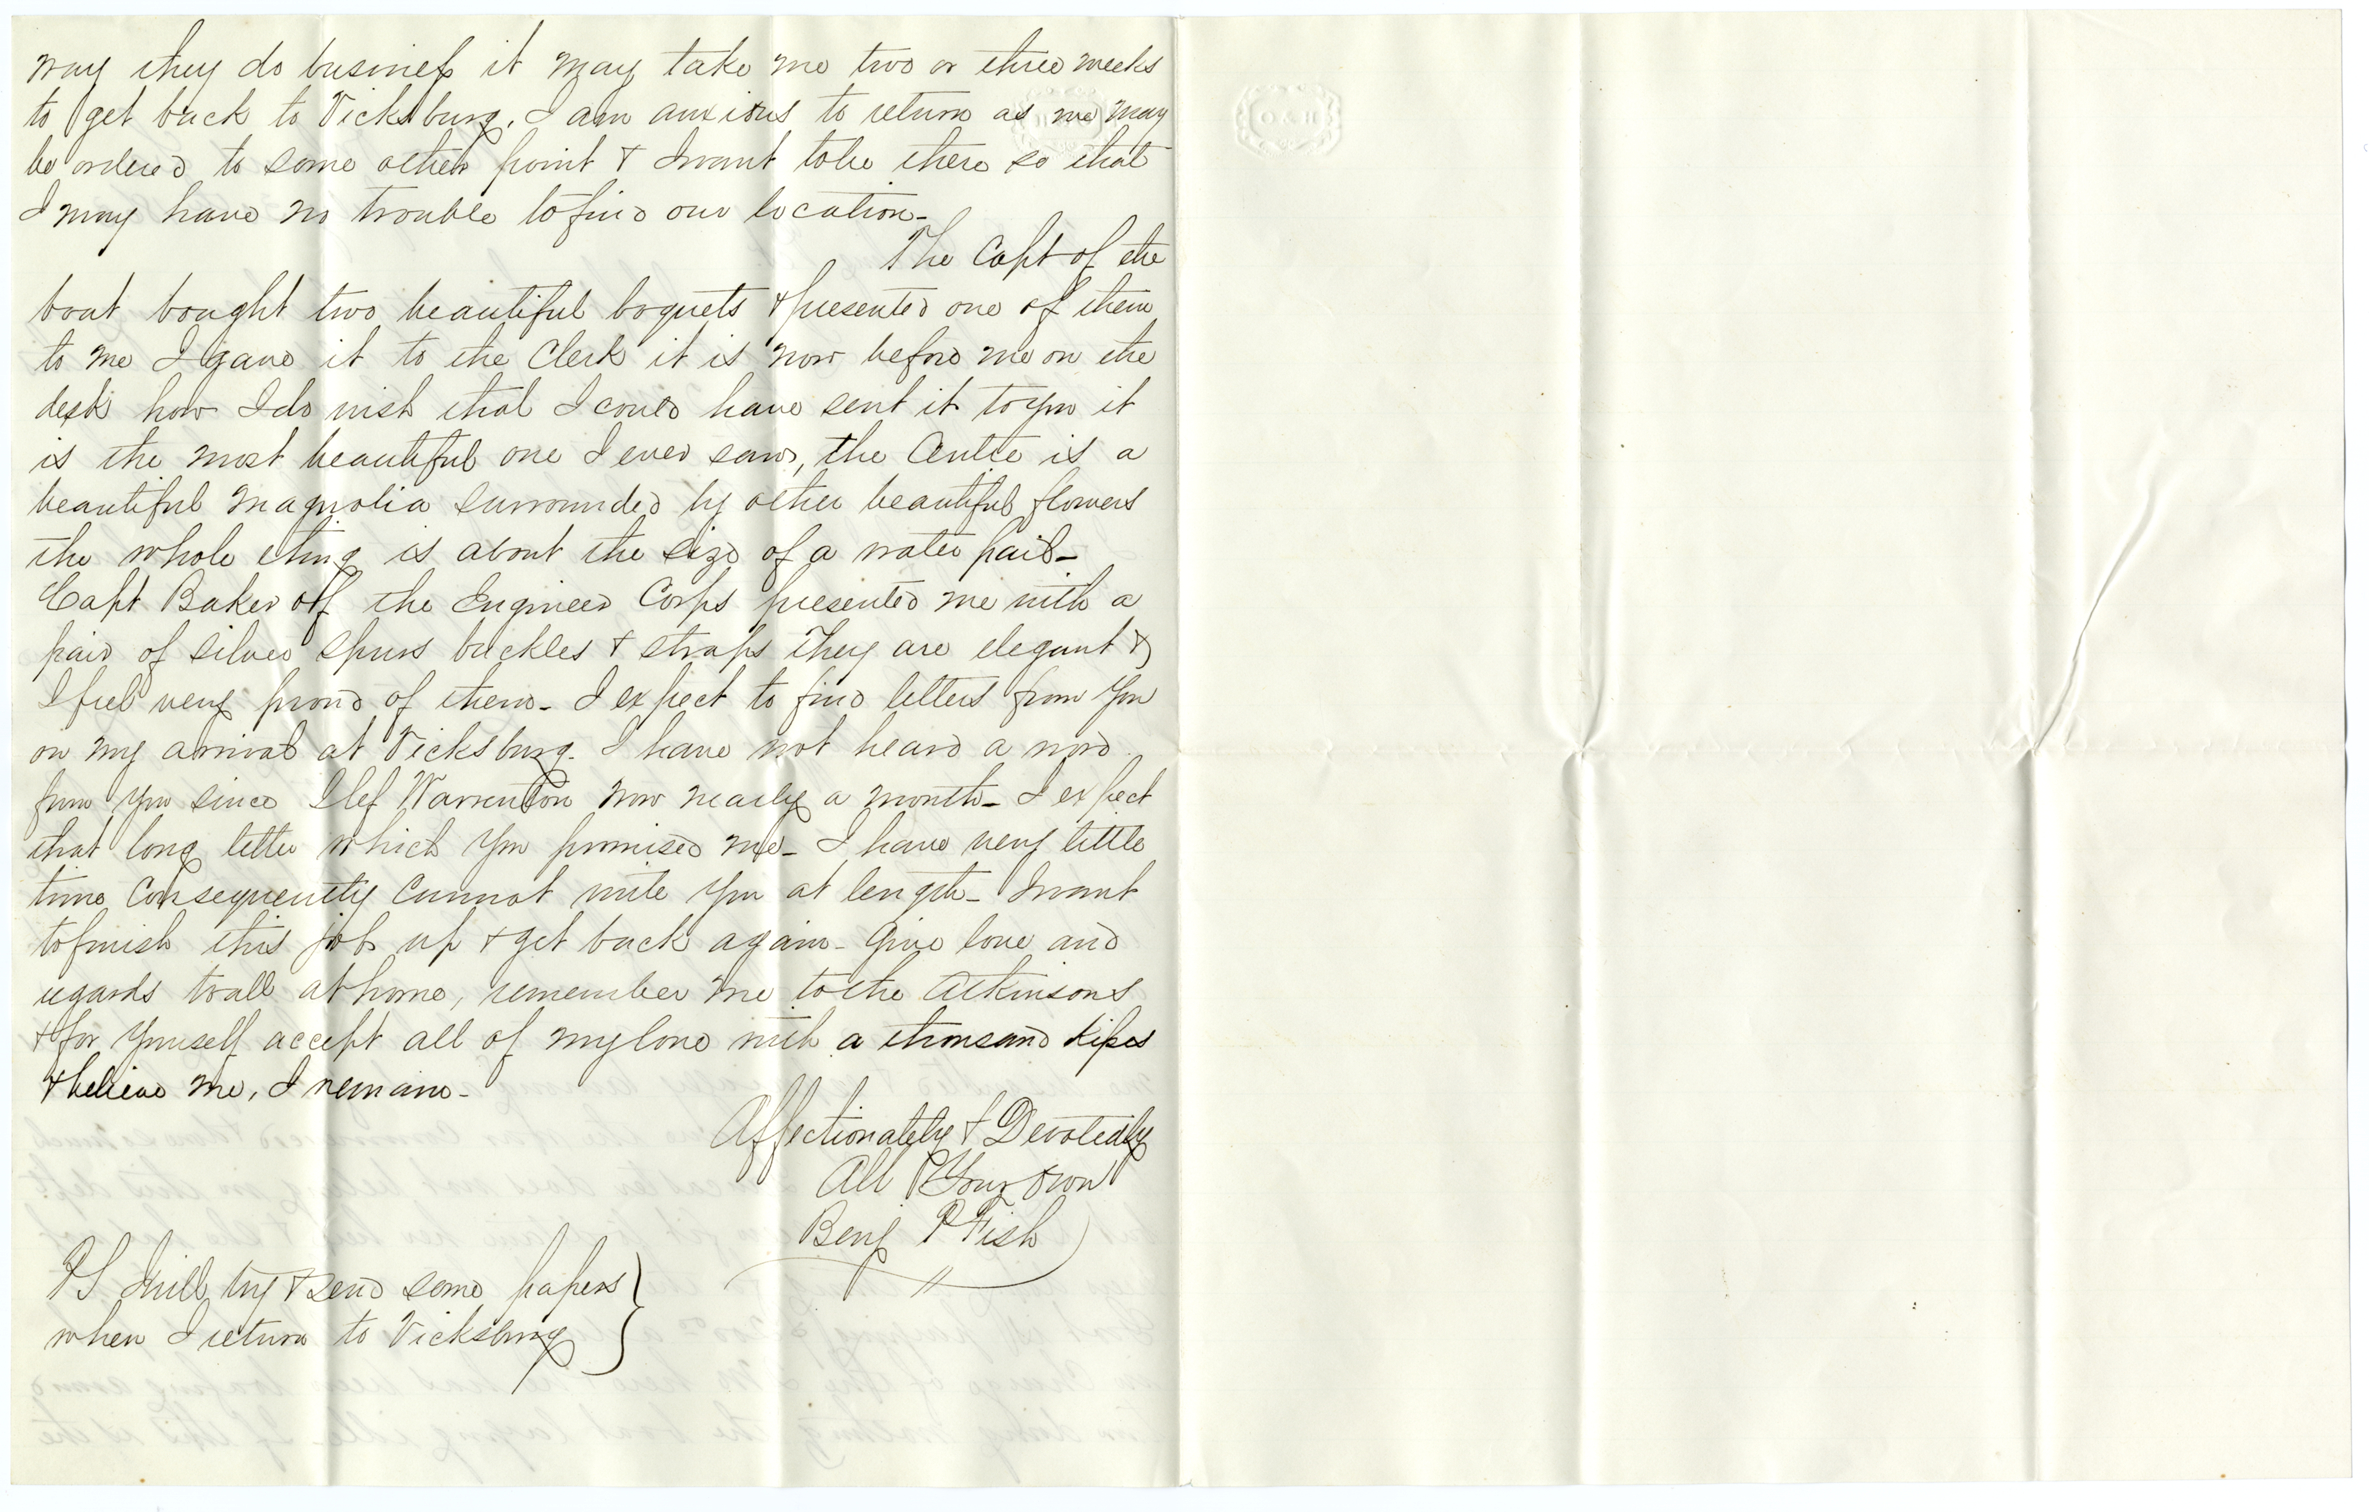 way they do business it may take me two or three weeks
to get back to Vicksburg. I am anxious to return as we may
be ordered to some other point & I want to be there so that
I may have no trouble to find our location-
The Capt of the
boat bought two beautiful boquets & presented one of them
to me I gave it to the Clerk it is now before me on the
desk how I do wish that I could have sent it to you it
is the most beautiful one I ever saw, the Centre is a
beautiful magnolia surrounded by other beautiful flowers
the whole thing is about the size of a water pail-
Capt Baker off the Engineer Corps presented me with a
pair of silver spurs buckles & straps They are elegant &
I feel very proud of them- I expect to find letters from you
on my arrival at Vicksburg. I have not heard a word
from you since I lef Warrenton now nearly a month- I expect
that long letter which you promised me- I have very little
time Consequently Cannot write you at length- I want
to finish this job up & get back again- Give love and
regards to all at home, remember me to the Atkinsons
& for yourself accept all of my love with a thousand kisses
& believe me, I remain-
Affectionately & Devotedly
All Your own
Benj P Fish
PS I will try & send some papers
when I return to Vicksburg
O & H